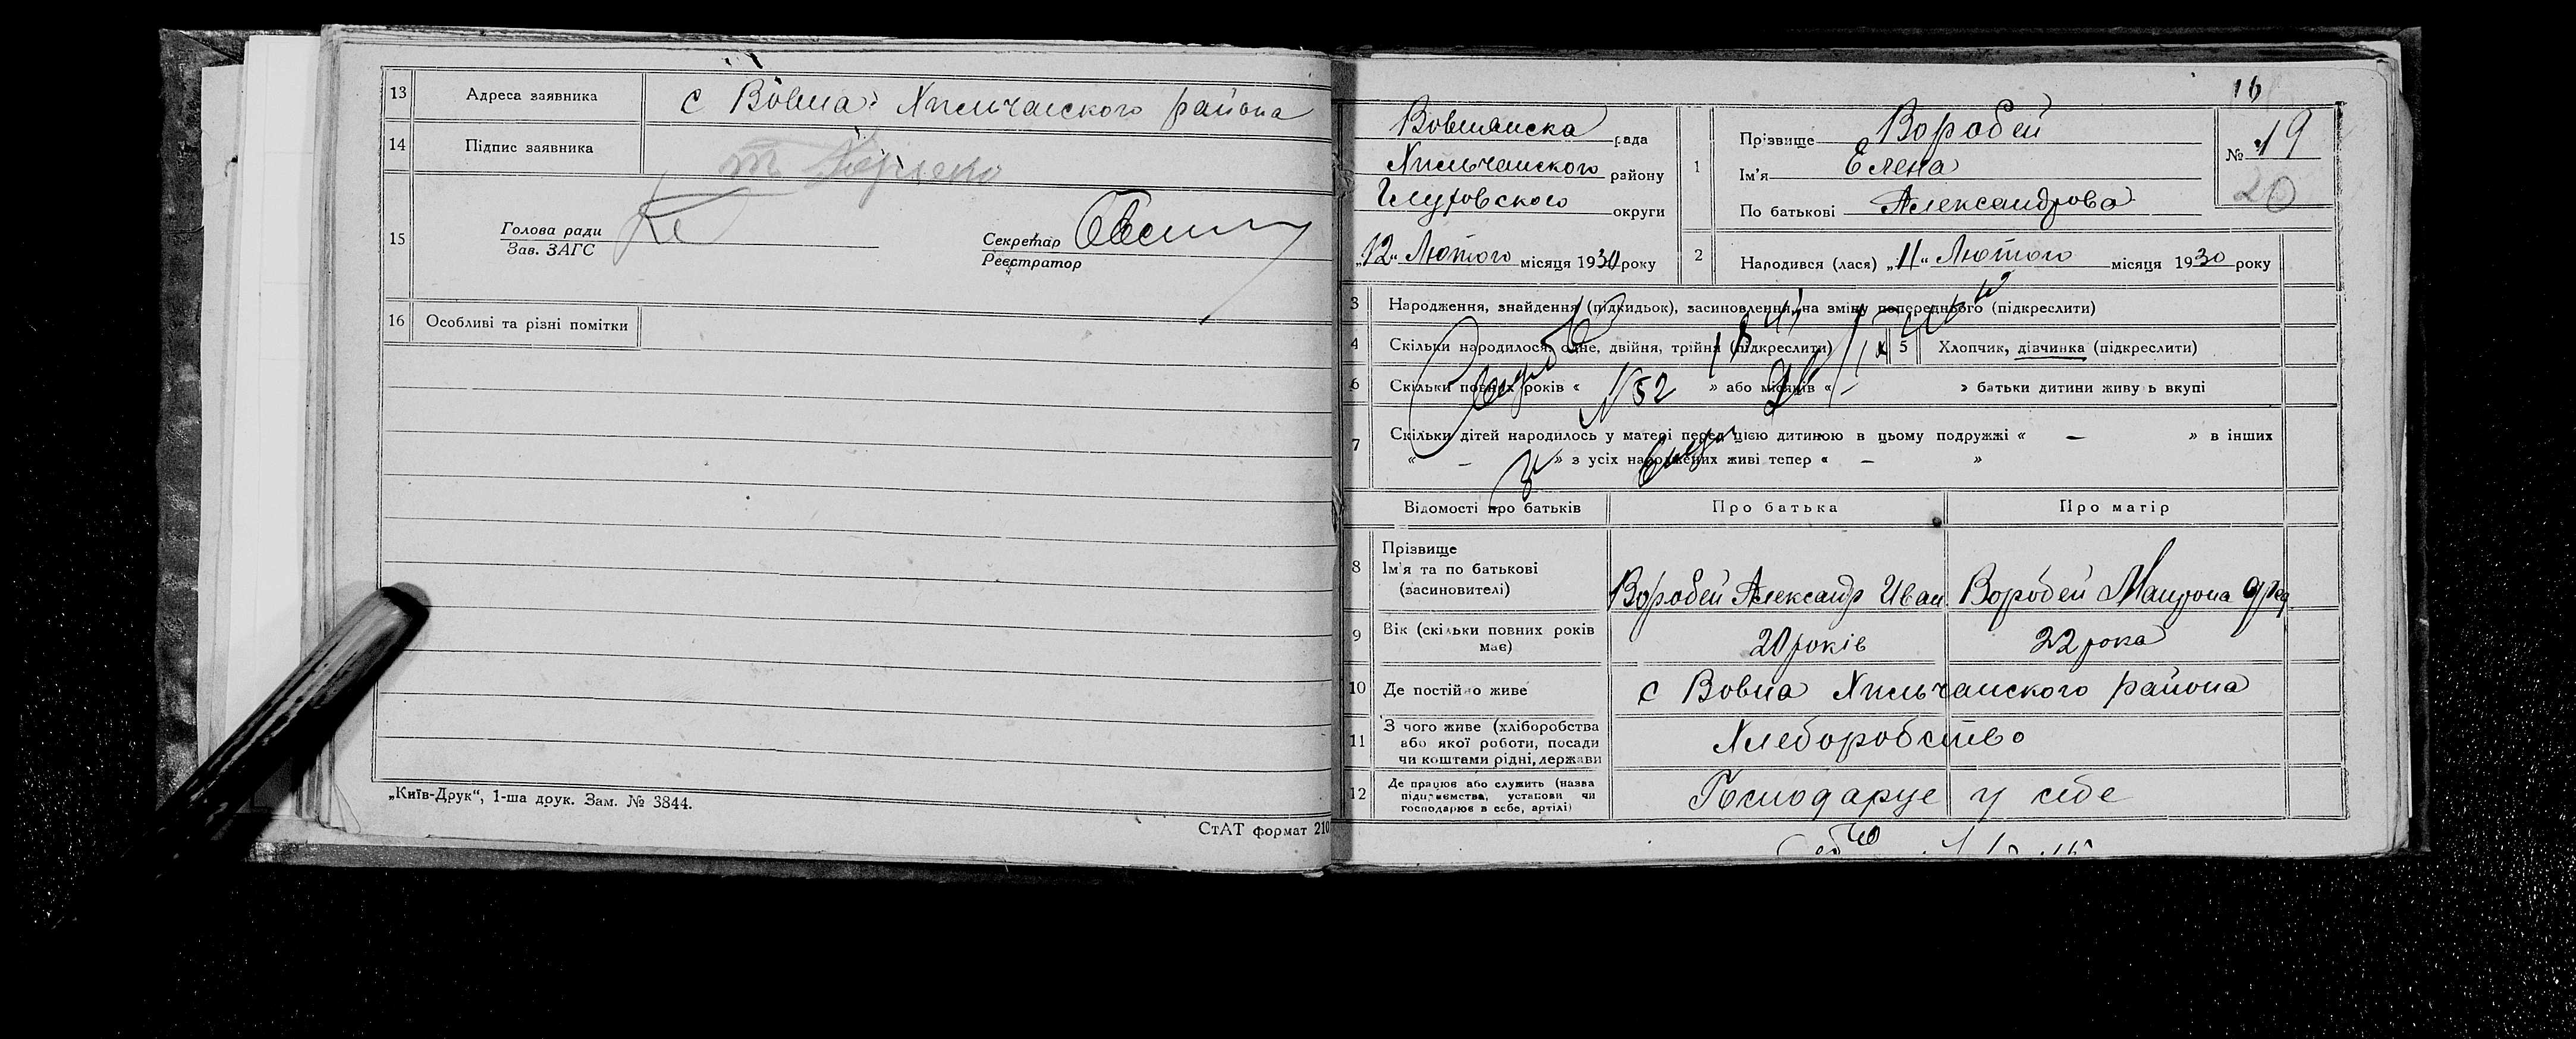 13 Адреса заявника с Вовна Хильчанского района
14 Підпис заявника
15 Голова ради
Зав. ЗАГС
Секретар
Реєстратор
16 Особливі та різні помітки
„Київ-Друк“, 1-ша друк. Зам. № 3844.
СтАТ формат 210
16
Вовнянска рада
Хильчанского району
Глуховского округи
„12“ Лютого місяця 1930 року
1 Прізвище Воробей
Ім'я Елена
По батькові Александрова
№ 19
20
2 Народився (лася) „11“ Лютого місяця 1930 року
3 Народження, знайдення (підкидьок), засиновлення, на зміну попереднього (підкреслити)
4 Скільки народилося: одне, двійня, трійня (підкреслити)
5 Хлопчик, дівчинка (підкреслити)
6 Скільки повних років « » або місяців « — » батьки дитини живуть вкупі
№52
7 Скільки дітей народилось у матері перед цією дитиною в цьому подружжі « — » в інших
« — » з усіх народжених живі тепер « — »
Відомості про батьків Про батька Про матір
8 Прізвище
Ім'я та по батькові
(засиновителі)
Воробей Александр Иван Воробей Матрона
9 Вік (скільки повних років
має)
20 років 22 рока
10 Де постійно живе с Вовна Хильчанского района
11 З чого живе (хліборобства
або якої роботи, посади
чи коштами рідні, держави
Хлеборобство
12 Де працює або служить (назва
підприємства, установи чи
господарює в себе, артілі)
Господарує у себе